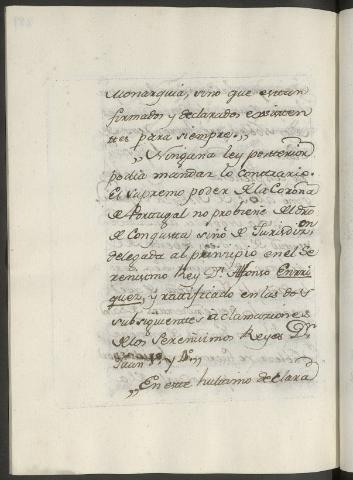 Monarquia, sino que estan
firmados y declarados existen
tes para siempre.,,
,,Ninguna ley posterior
podia mandar lo contrario.
El supremo poder de la Corona
de Portugal no probiene del dro
de Conquista sino de Jurisdicion
delegada al principio en el Se
renissimo Rey Dn. Alfonso Enrri
quez, y ratificado en las dos
subsiguientes aclamaciones
de los Serenissimos Reyes Dn.
Juan 1º, y 4º,,
,,En este hultimo declara